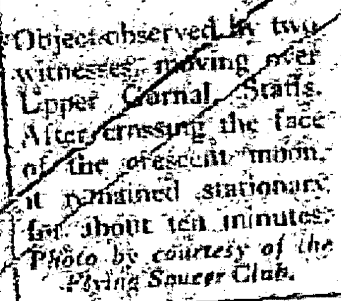 Object observed by two
witnesses, moving over
Upper Gornal, Staffs.
After crossing the face
of the crescent moon,
it remained stationary
for about ten minutes.
Photo by courtesy of the
Flying Saucer Club.